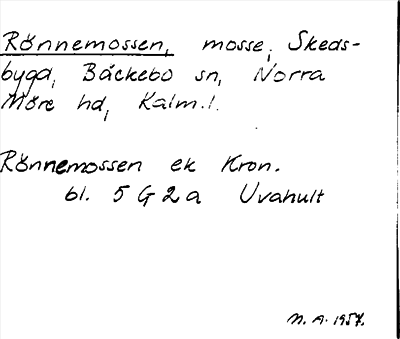 Rönnemossen, mosse, Skeds-
bygd, Bäckebo sn, Norra
Möre hd, Kalm.l.
Rönnemossen ek Kron.
bl. 5 G 2 a Uvahult
N. A. 1957.